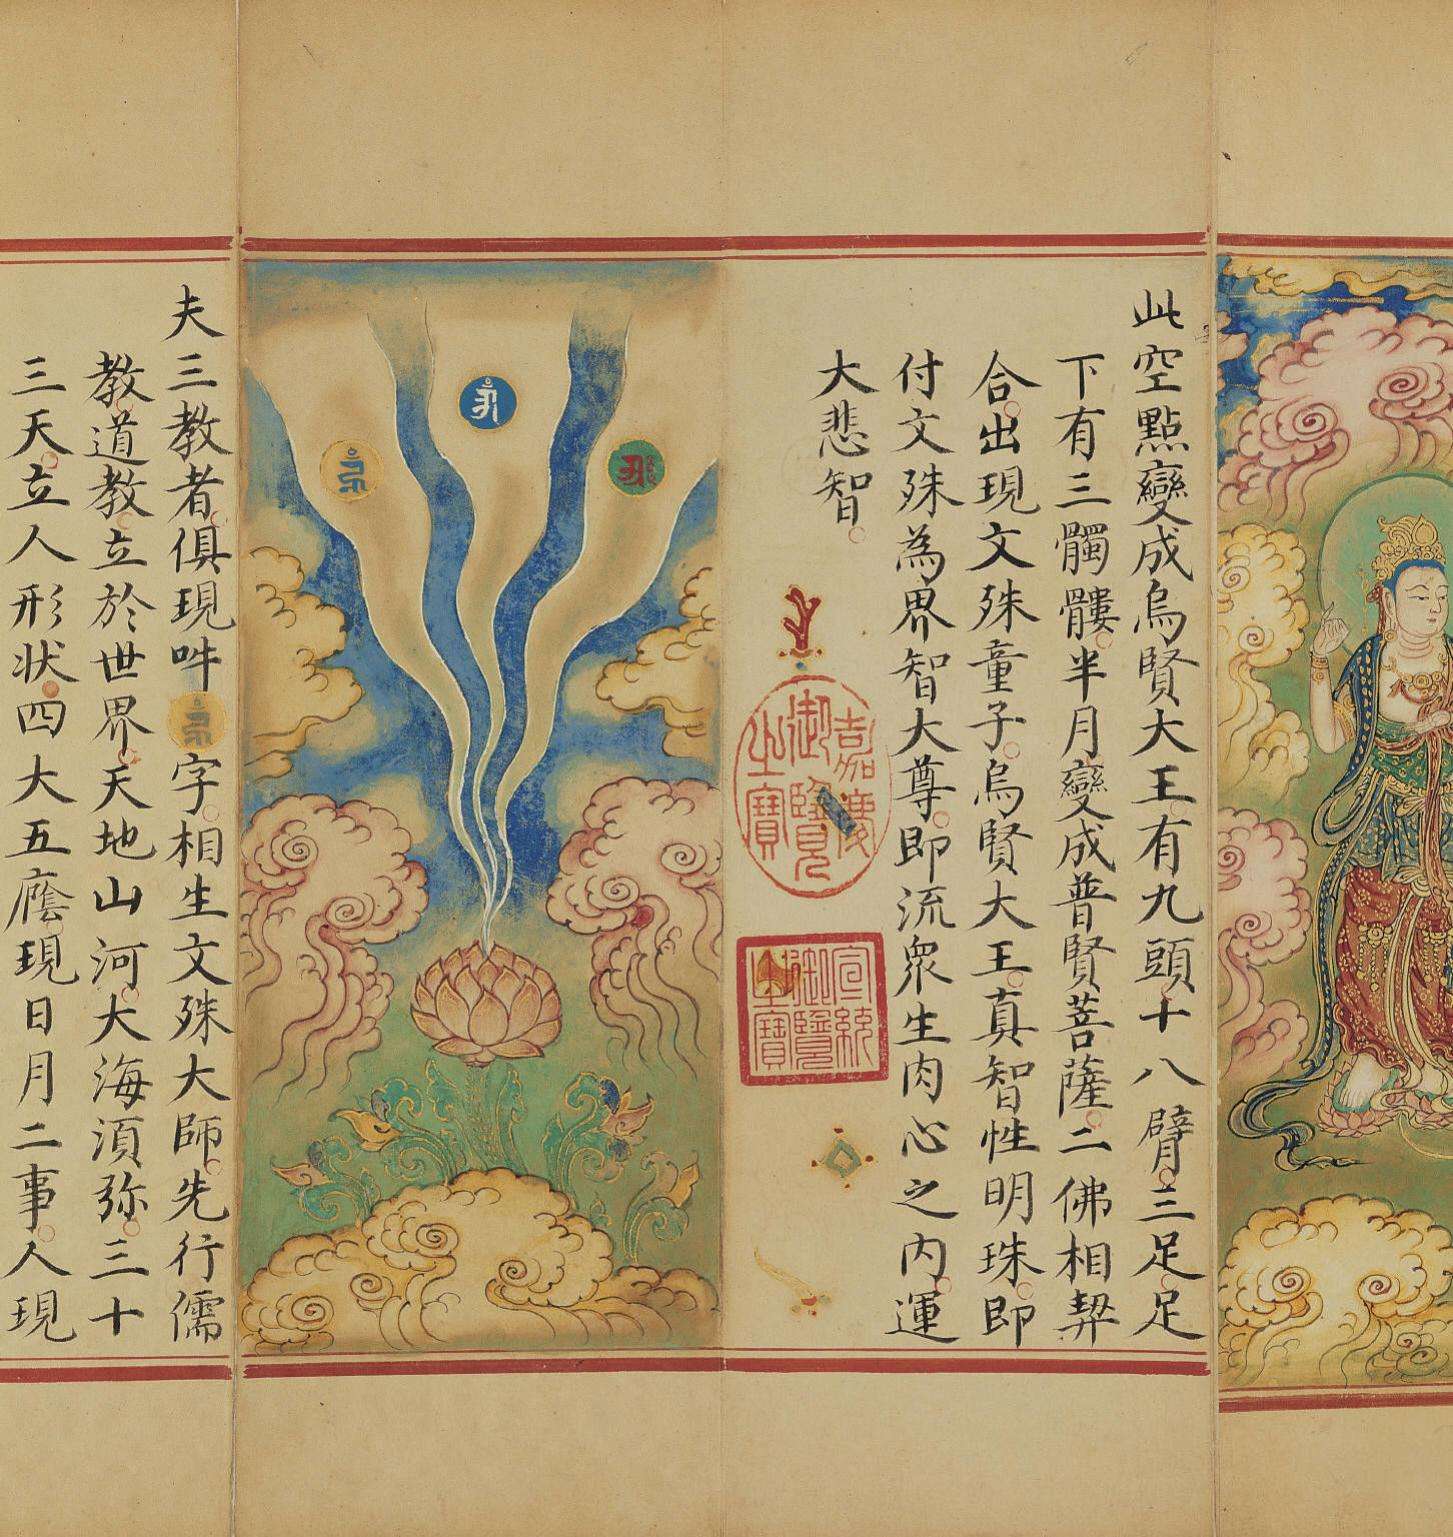 此空點變成烏賢大王有九頭十八臂三足足
下有三髑髏半月變成普賢菩薩二佛相契
合出現文殊童子烏賢大王真智性明珠即
付文殊為界智大尊即流眾生肉心之內運
大悲智
嘉慶御覽之寶
宣統御覽之寶
夫三教者俱現吽字相生文殊大師先行儒
教道教立於世界天地山河大海須弥三十
三天立人形状四大五廕現日月二事人現